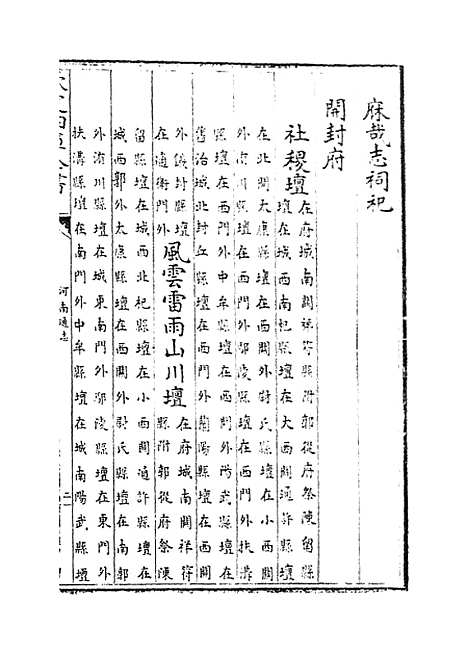 庥哉志祠祀
開封府
社稷壇
在府城南關祥符縣附郭從府祭陳留縣
壇在城西南杞縣壇在大西關通許縣壇
在北關太康縣壇在西關外尉氏縣壇在小西關
外洧川縣壇在西門外鄢陵縣壇在西門外扶溝
縣壇在西門外中牟縣壇在西門外陽武縣壇在
舊治城北封丘縣壇在西門外蘭陽縣壇在西關
外儀封縣壇
在通衢門外
風雲雷雨山川壇
在府城南關祥符
縣附郭從府祭陳
留縣壇在城西北杞縣壇在小西關通許縣壇在
城西郭外太康縣壇在西關外尉氏縣壇在南郭
外洧川縣壇在城東南門外鄢陵縣壇在東門外
扶溝縣壇在南門外中牟縣壇在城南陽武縣壇
河南通志